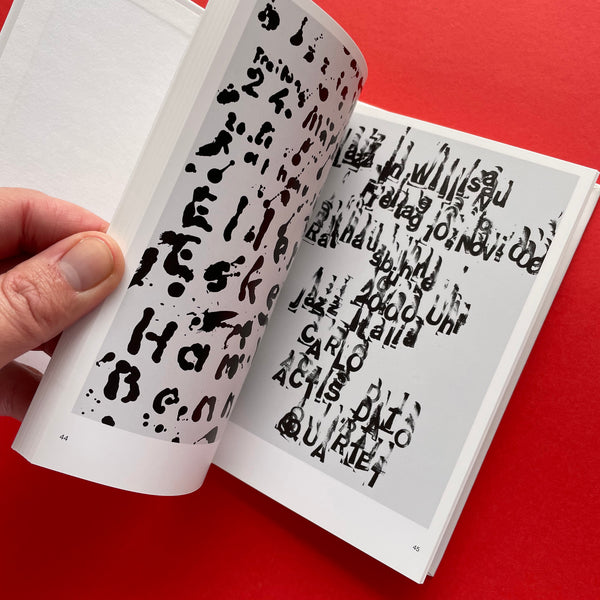 24. Ma
Ratha
Elle
Eske
Han
Benn
44
Jazz in Willisau
Freitag 10. Nov.
Rathausbühne
20.00 Uhr
Jazz Italia
CARLO
ACTIS DATO
QUARTET
45